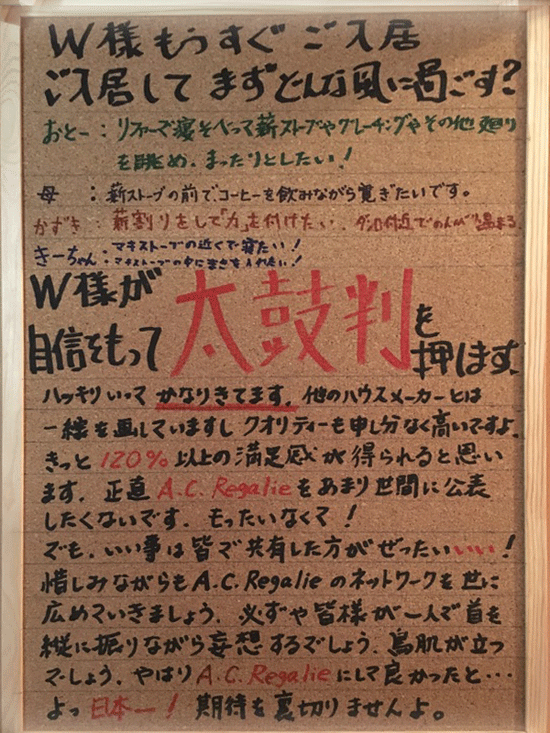 W様もうすぐご入居
ご入居してまずどんな風に過ごす?
おとー:ソファーで寝そべって薪ストーブやグレーチングやその他廻り
を眺め、まったりとしたい!
母:薪ストーブの前でコーヒーを飲みながら寛ぎたいです。
かずき:薪割りをして「力」を付けたい、ダンロ付近でのんびり温まる。
きーちゃん:マキストーブの近くで寝たい!
マキストーブの中にまきを入れたい!
W様が
自信をもって太鼓判を
押します。
ハッキリいってかなりきてます。他のハウスメーカーとは
一線を画していますしクオリティーも申し分なく高いですよ。
きっと120%以上の満足感が得られると思い
ます。正直A.C.Regalieをあまり世間に公表
したくないです。もったいなくて!
でも、いい事は皆で共有した方がぜったいいい!
惜しみながらもA.C.Regalieのネットワークを世に
広めていきましょう。必ずや皆様が一人で首を
縦に振りながら妄想するでしょう。鳥肌が立つ
でしょう。やはりA.C.Regalieにして良かったと…
よっ日本一!期待を裏切りませんよ。